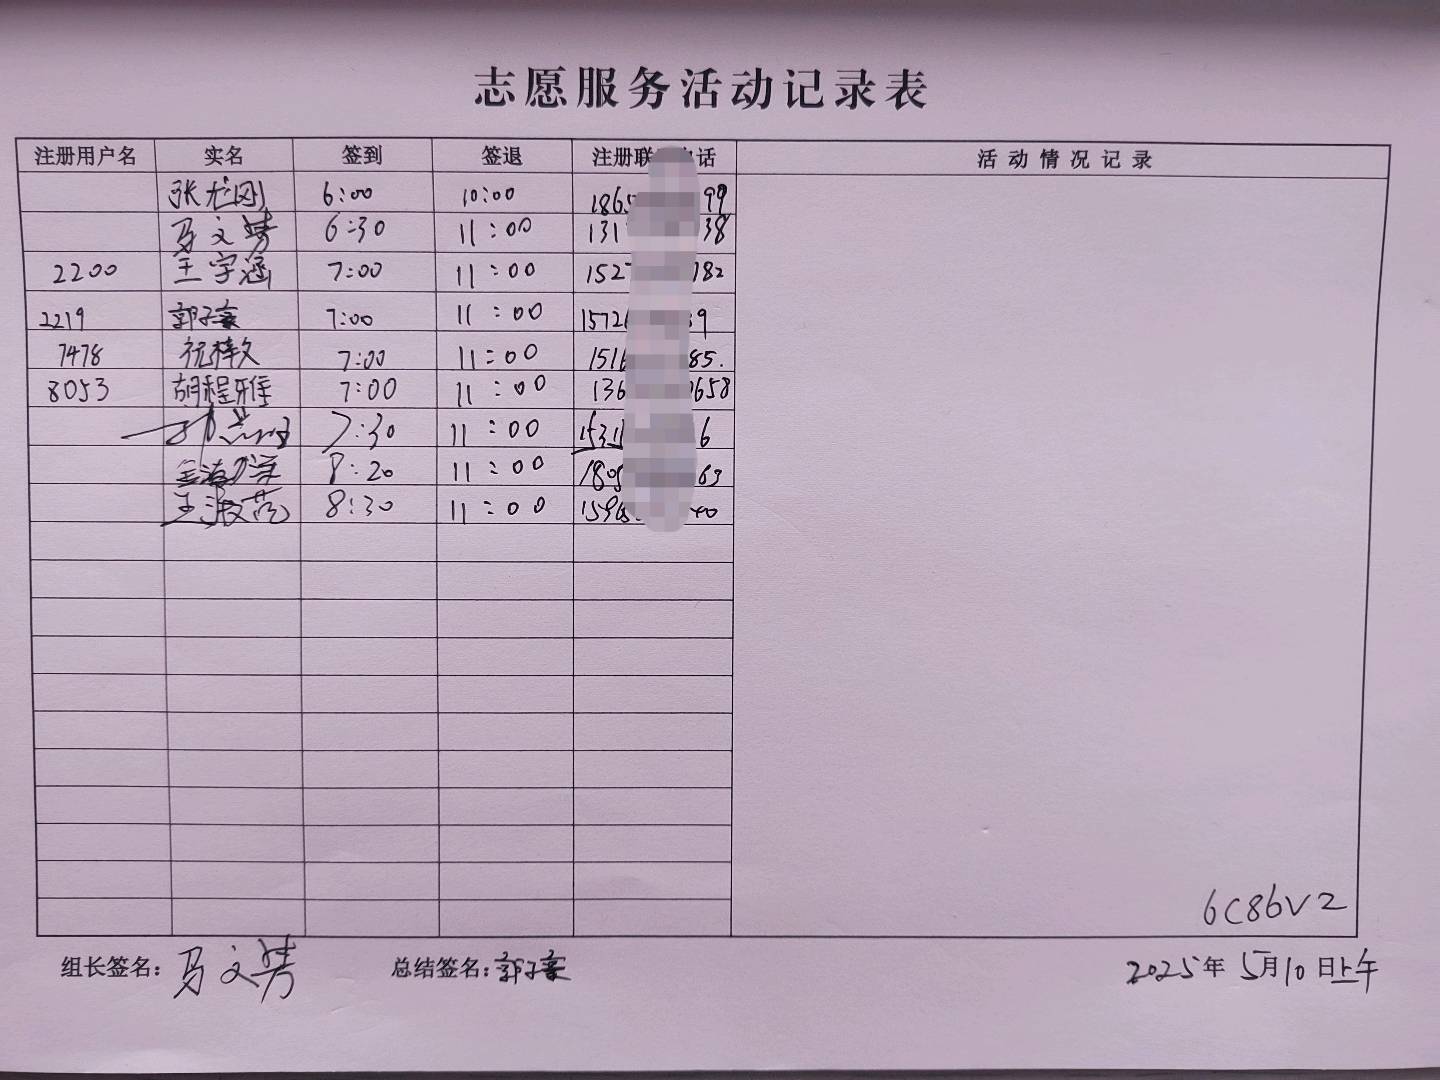 志愿服务活动记录表
注册用户名 实名 签到 签退 注册联 话 活动情况记录
张龙刚 6:00 10:00 1865 99
马文慧 6:30 11:00 131 38
2200 王字涵 7:00 11:00 152 782
2219 郭子豪 7:00 11:00 1572 9
7478 祝梓文 7:00 11:00 151 85.
8053 胡程雅 7:00 11:00 136 0658
7:30 11:00 1531 6
8:20 11:00 180 63
王淑范 8:30 11:00 1596 40
6C86V2
组长签名: 马文慧 总结签名: 郭子豪 2025年5月10日上午